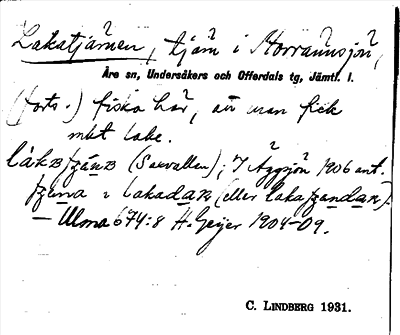 Lakatjärnen, tjärn i Norrånnsjön,
Åre sn, Undersåkers och Offerdals tg, Jämtl. l.
(forts.) fiska här, att man fick
mkt lake.
(Saxvallen); I Äggsjön 1906 ant.
i lakadan (eller
— Ulma 674:8 H. Geijer 1904-09.
C. LINDBERG 1931.